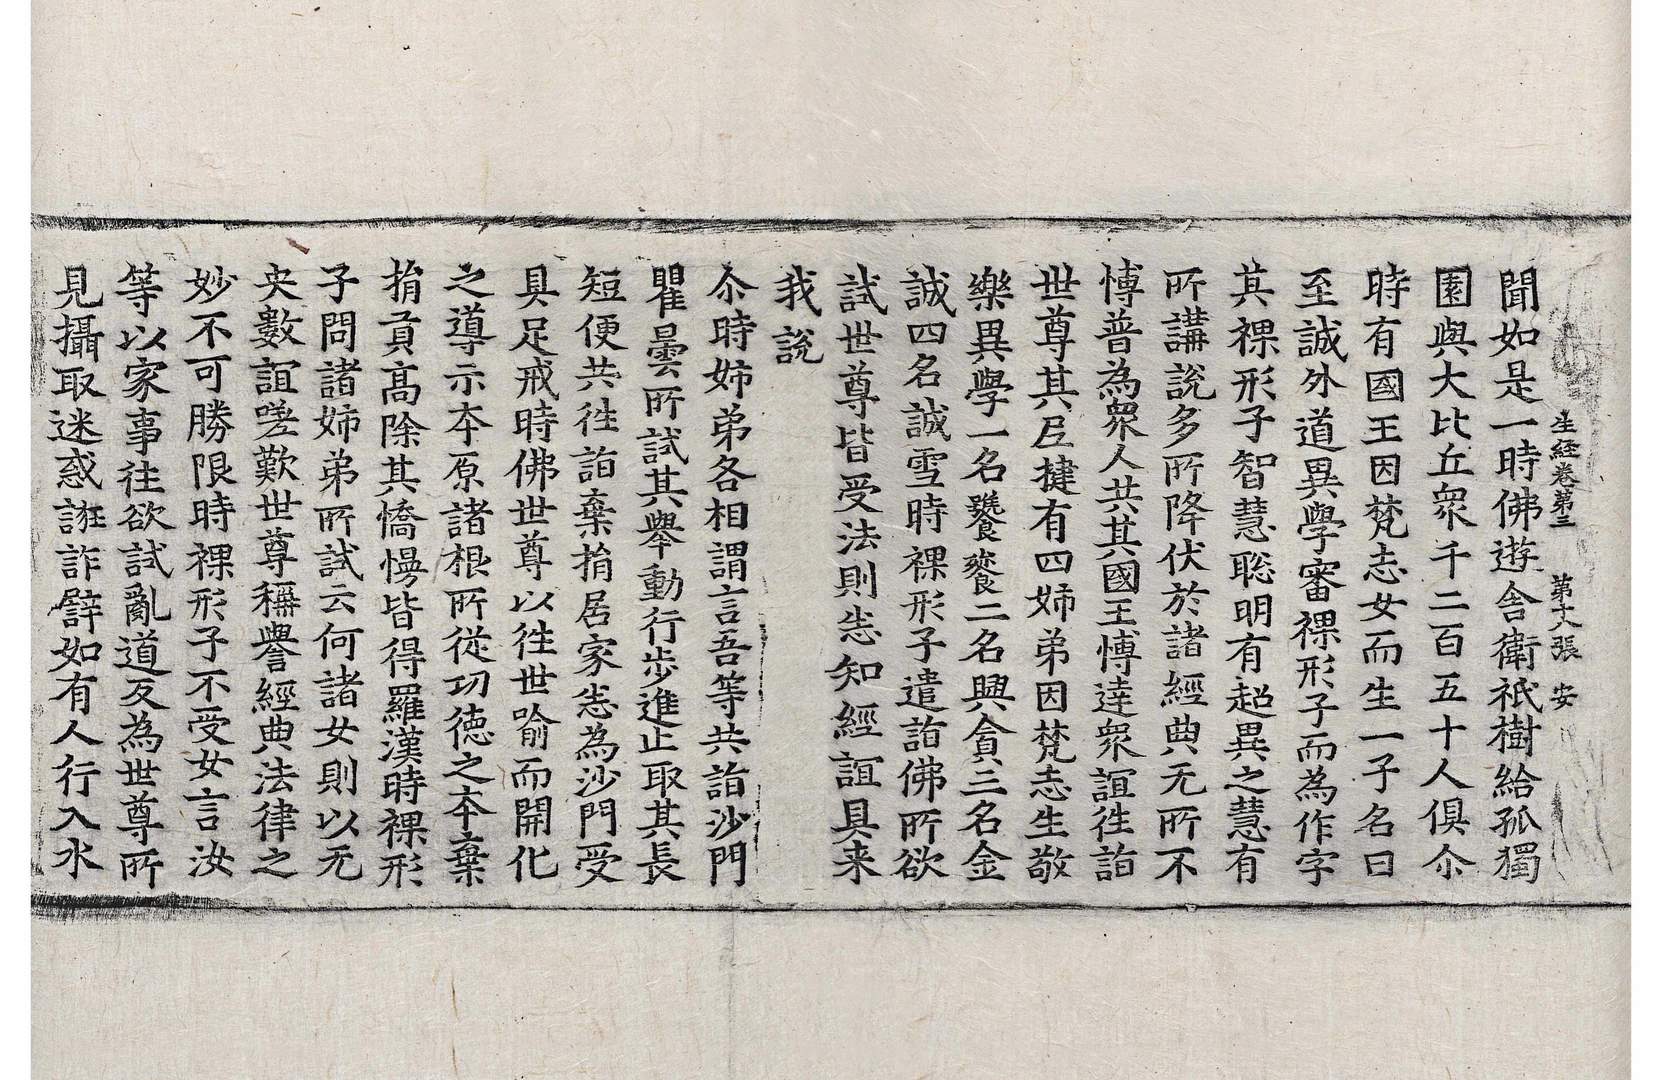 生經卷第三 第十八張 安
聞如是一時佛遊舍衛祇樹給孤獨
園與大比丘衆千二百五十人俱尒
時有國王因梵志女而生一子名曰
至誠外道異學審裸形子而為作字
其裸形子智慧聦明有超異之慧有
所講說多所降伏於諸經典无所不
愽普為衆人共其國王愽達衆誼徃詣
世尊其尼揵有四姉弟因梵志生敬
樂異學一名饕餮二名興貪三名金
誠四名誠雪時裸形子遣詣佛所欲
試世尊皆受法則悉知經誼具来
我說
尒時姉弟各相謂言吾等共詣沙門
瞿曇所試其舉動行步進止取其長
短便共徃詣棄捐居家悉為沙門受
具足戒時佛世尊以徃世喻而開化
之導示本原諸根所從功德之本棄
捐貢髙除其憍慢皆得羅漢時裸形
子問諸姉弟所試云何諸女則以无
央數誼嗟歎世尊稱譽經典法律之
妙不可勝限時裸形子不受女言汝
等以家事往欲試亂道反為世尊所
見攝取迷惑誑詐譬如有人行入水